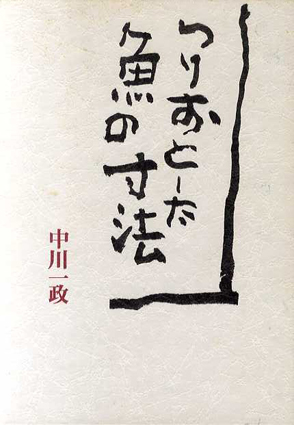 つりおとした
魚の寸法
中川一政